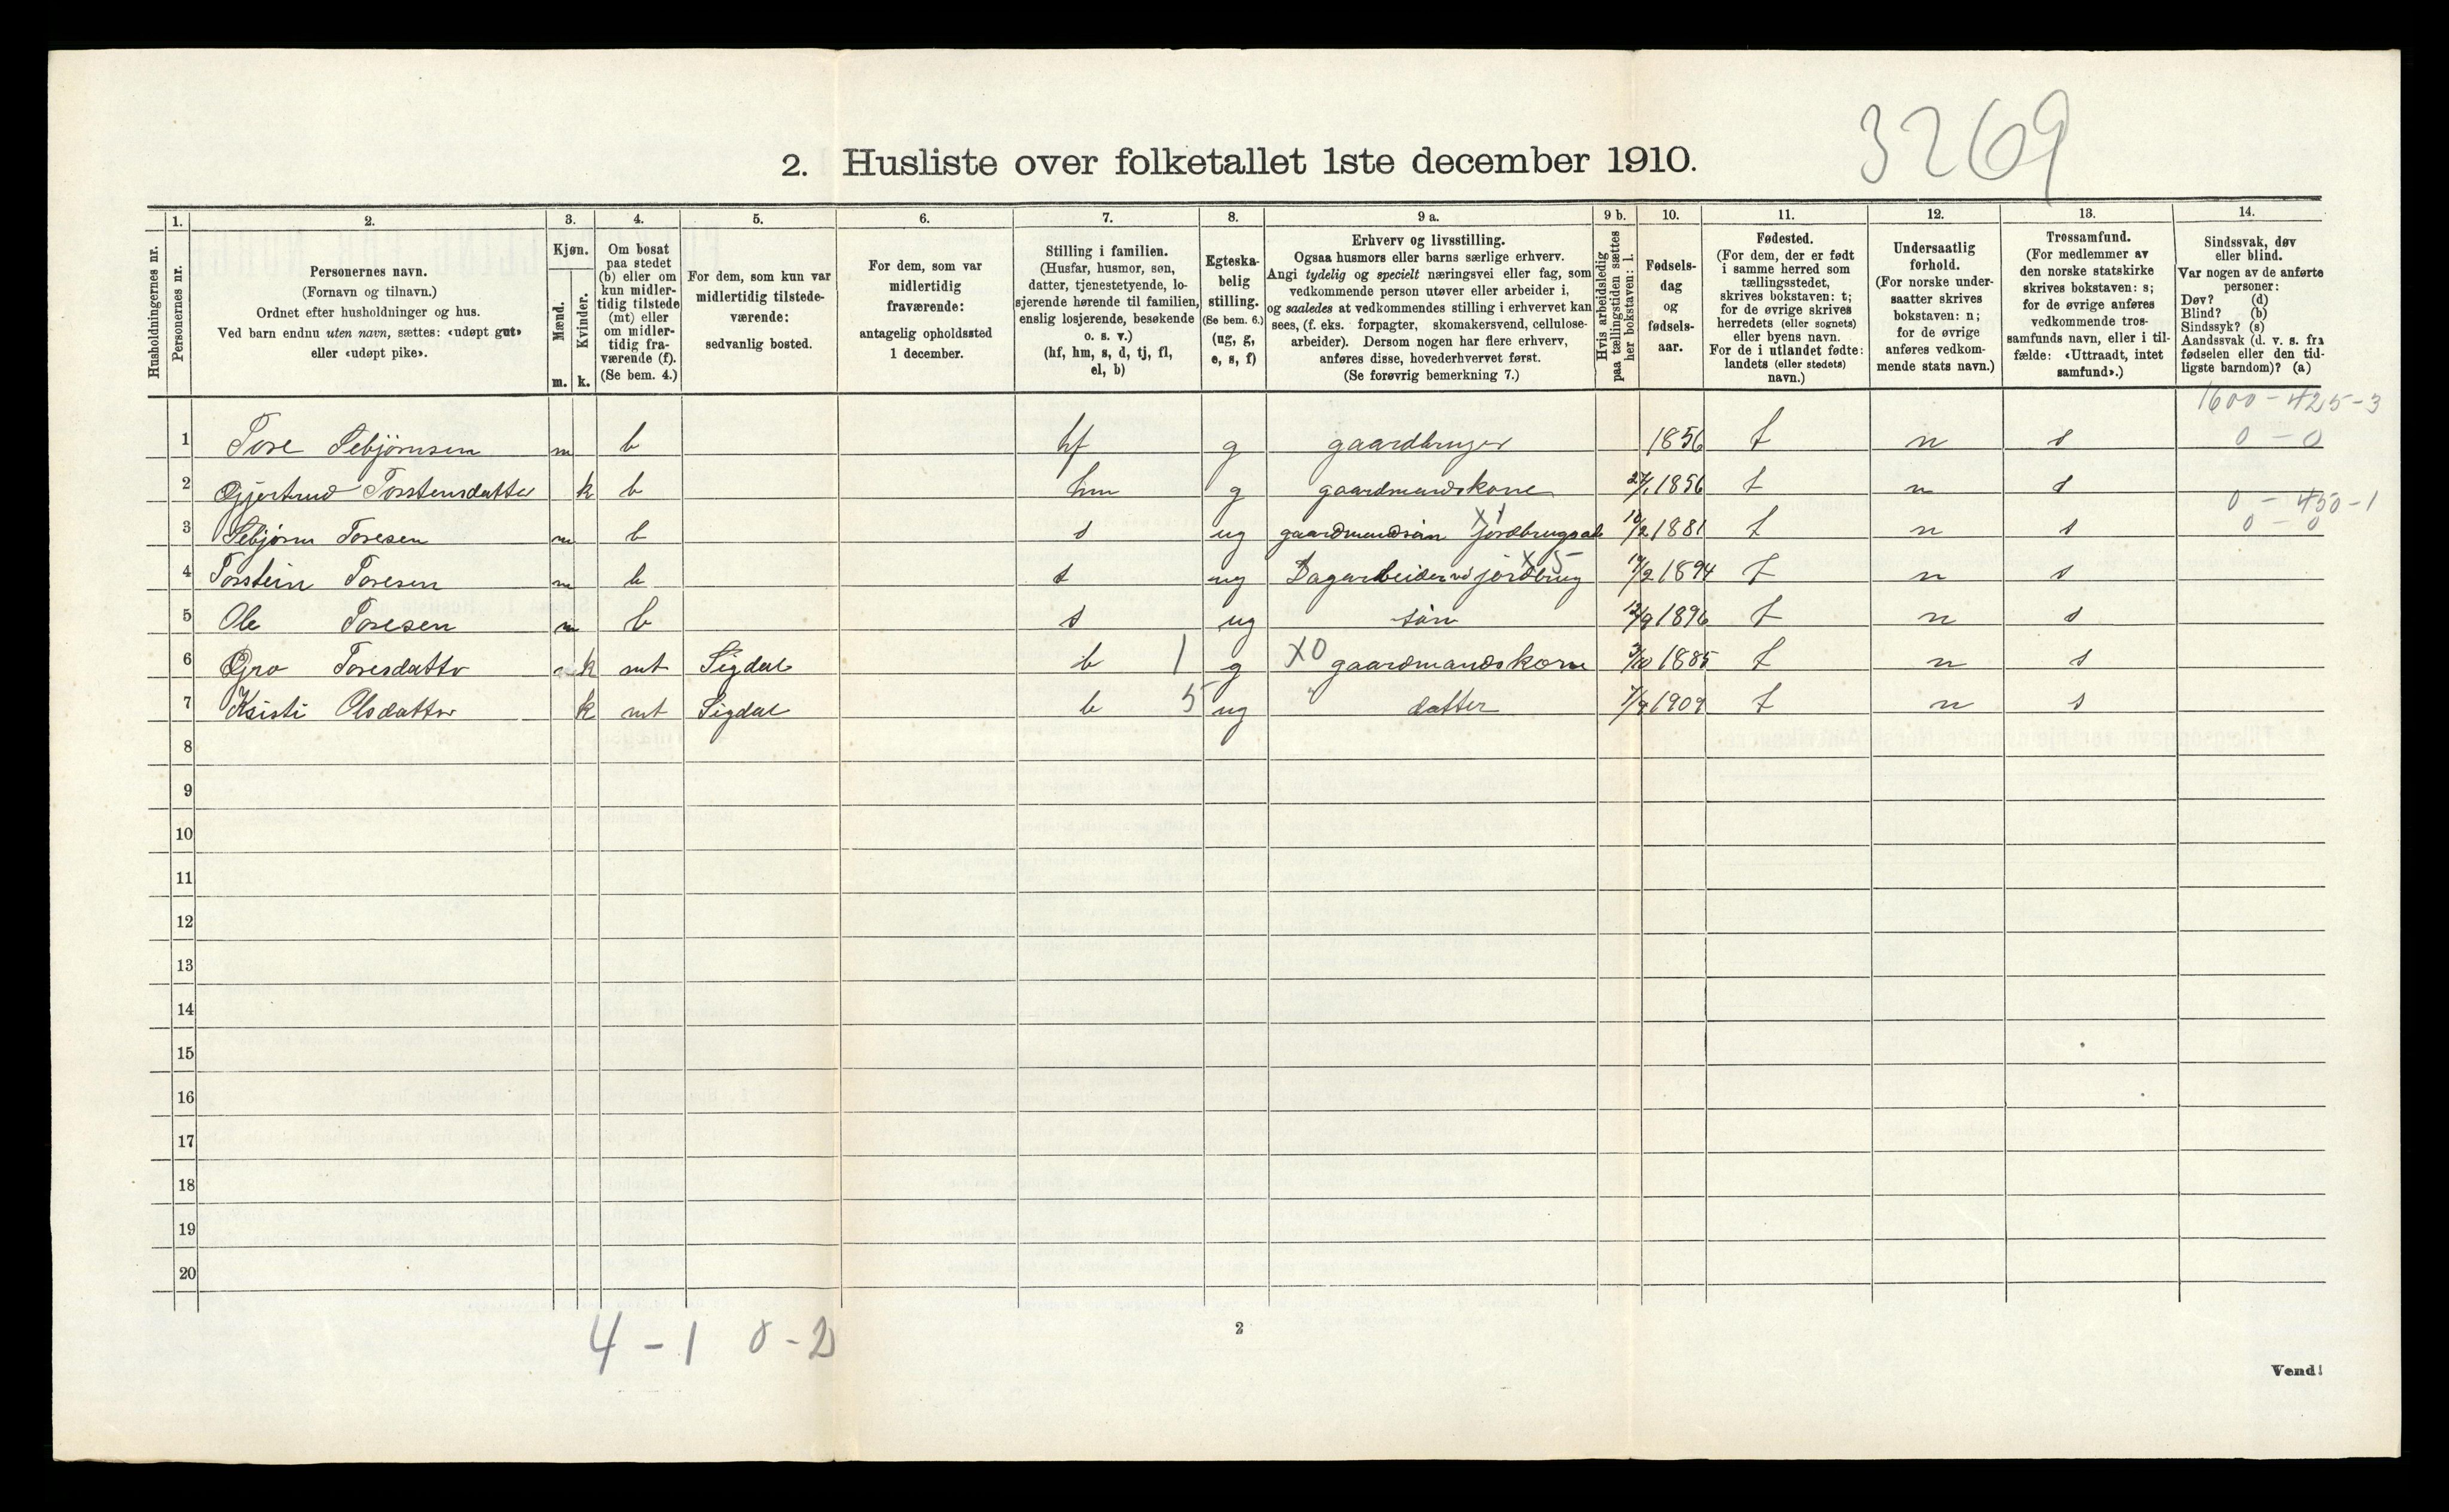 3269
2. Husliste over folketallet 1ste december 1910.
1. 2. 3. 4. 5. 6. 7. 8. 9 a. 9 b. 10. 11. 12. 13. 14.
Husholdningernes nr.
Personernes nr.
Personernes navn.
(Fornavn og tilnavn.)
Ordnet efter husholdninger og hus.
Ved barn endnu uten navn, sættes: «udøpt gut»
eller «udøpt pike».
Kjøn.
Mænd.
Kvinder.
m. k.
Om bosat
paa stedet
(b) eller om
kun midler-
tidig tilstede
(mt) eller
om midler-
tidig fra-
værende (f).
(Se bem. 4.)
For dem, som kun var
midlertidig tilstede-
værende:
sedvanlig bosted.
For dem, som var
midlertidig
fraværende:
antagelig opholdssted
1 december.
Stilling i familien.
(Husfar, husmor, søn,
datter, tjenestetyende, lo-
sjerende hørende til familien,
enslig losjerende, besøkende
o. s. v.)
(hf, hm, s, d, tj, fl,
el, b)
Egteska-
belig
stilling.
(Se bem. 6.)
(ug, g,
e, s, f)
Erhverv og livsstilling.
Ogsaa husmors eller barns særlige erhverv.
Angi tydelig og specielt næringsvei eller fag, som
vedkommende person utøver eller arbeider i,
og saaledes at vedkommendes stilling i erhvervet kan
sees, (f. eks. forpagter, skomakersvend, cellulose-
arbeider). Dersom nogen har flere erhverv,
anføres disse, hovederhvervet først.
(Se forøvrig bemerkning 7.)
Hvis arbeidsledig
paa tællingstiden sættes
her bokstaven: l.
Fødsels-
dag
og
fødsels-
aar.
Fødested.
(For dem, der er født
i samme herred som
tællingsstedet,
skrives bokstaven: t;
for de øvrige skrives
herredets (eller sognets)
eller byens navn.
For de i utlandet fødte:
landets (eller stedets)
navn.)
Undersaatlig
forhold.
(For norske under-
saatter skrives
bokstaven: n;
for de øvrige
anføres vedkom-
mende stats navn.)
Trossamfund.
(For medlemmer av
den norske statskirke
skrives bokstaven: s;
for de øvrige anføres
vedkommende tros-
samfunds navn, eller i til-
fælde: «Uttraadt, intet
samfund».)
Sindssvak, døv
eller blind.
Var nogen av de anførte
personer:
Døv? (d)
Blind? (b)
Sindssyk? (s)
Aandssvak (d. v. s. fra
fødselen eller den tid-
ligste barndom)? (a)
1600 - 425 - 3
1 Tore Sebjørnsen m b hf g gaardbruger 1856 t n s 0 - 0
2 Gjertrud Torstensdatter k b hm g gaardmandskone 27/1 1856 t n s
0 - 450 - 1
3 Sebjørn Toresen m b s ug gaardmandsøn jordbrugsarb 10/2 1881 t n s 0 - 0
X 5
4 Torstein Toresen m b s ug Dagarbeider vd jordbrug 19/2 1894 t n s
5 Ole Toresen m b s ug søn 12/9 1896 t n s
6 Gro Toresdatter k mt Sigdal b 1 g X0 gaardmandskone 3/10 1885 t n s
7 Kristi Olsdatter k mt Sigdal b 5 ug " datter 7/9 1909 t n s
8
9
10
11
12
13
14
15
16
17
18
19
20
4 - 1 0 - 2
2
Vend!